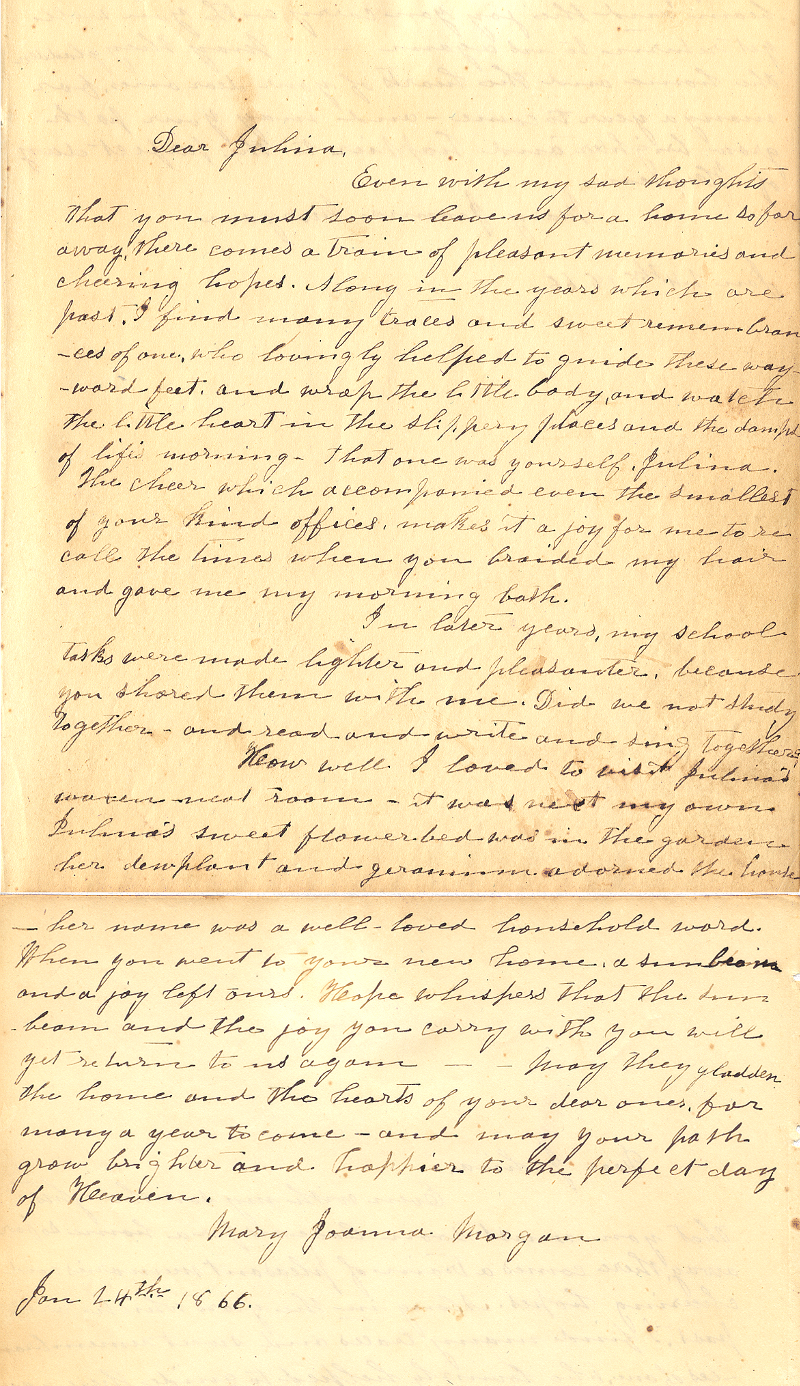 Dear Julina,
Even with my sad thoughts
that you must soon leave us for a home so far
away, there comes a train of pleasant memories and
cheering hopes. Along in the years which are
past, I find many traces and sweet remembran
-ces of one, who lovingly helped to guide these way-
-ward feet, and wrap the little body, and watch
the little heart in the slippery places and the damps
of life's morning - that one was yourself, Julina.
The cheer which accompanied even the smallest
of your kind offices, makes it a joy for me to re
call the times when you braided my hair
and gave me my morning bath.
In later years, my school
tasks were made lighter and pleasanter, because
you shared them with me. Did we not study
together - and read and write and sing together?
How well I loved to visit Julina's
neat room - it was next my own.
Julina's sweet flowerbed was in the garden
her dewplant and geranium adorned the house
- her name was a well-loved household word.
When you went to your new home, a sunbeam
and a joy left ours. Hope whispers that the sun
-beam and the joy you carry with you will
yet return to us again - - May they gladden
the home and the hearts of your dear ones, for
many a year to come - and may your path
grow brighter and happier to the perfect day
of Heaven.
Mary Joanna Morgan
Jan 24th. 1866.